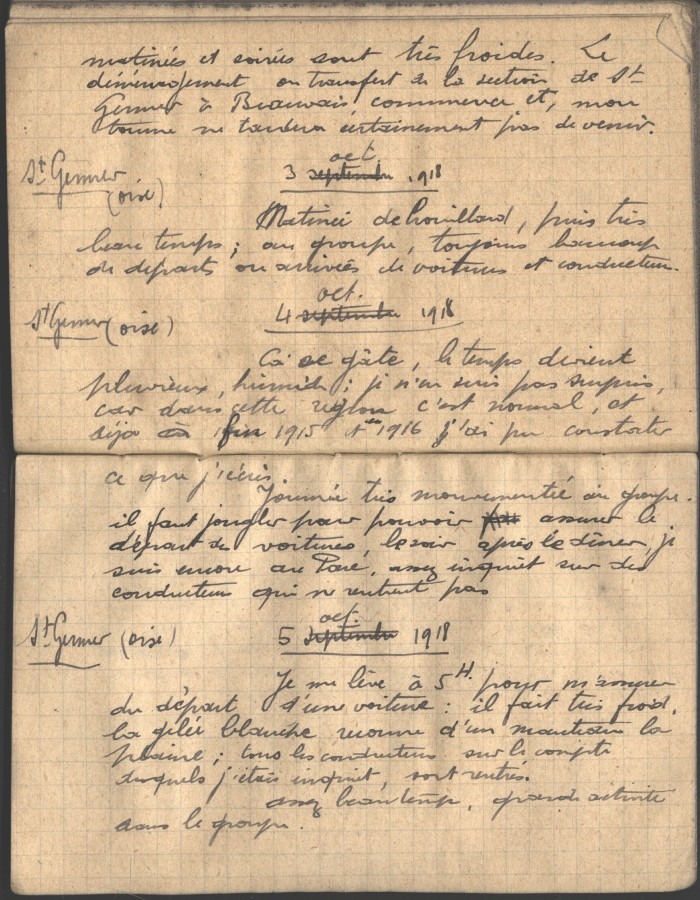 matinées et soirées sont très froides. Le
déménagement ou transfert de la section de St
Germer à Beauvais commence et, mon
tourne ne tardera certainement pas de venir.
St Germer (oise)
oct.
3 septembre 1918
Matinée de brouillard, puis très
beau temps ; au groupe, toujours beaucoup
de départs ou arrivées de voitures et conducteurs.
oct.
St Germer (oise) 4 septembre 1918
Cà se gâte, le temps devient
pluvieux, humide ; je n'en suis pas surpris,
car dans cette région c'est normal, et
déjà fin 1915 et 1916 j'ai pu constater
ce que j'écris.
Journée très mouvementée au groupe.
il faut jongler pour pouvoir assurer le
départ des voitures, le soir après le dîner, je
suis encore au Parc, assez inquiet sur des
conducteurs qui ne rentrent pas
oct.
St Germer (oise) 5 septembre 1918
Je me lève à 5 H. pour m'assurer
du départ d'une voiture : il fait très froid.
la gelée blanche recouvre d'un manteau la
plaine ; tous les conducteurs sur le compte
desquels j'étais inquiet, sont rentrés.
assez beau temps, grande activité
dans le groupe.